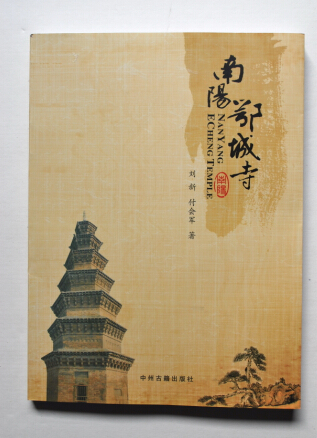 南陽鄂城寺
NANYANG
ECHENG TEMPLE
刘 新 付会军 著
中州古籍出版社